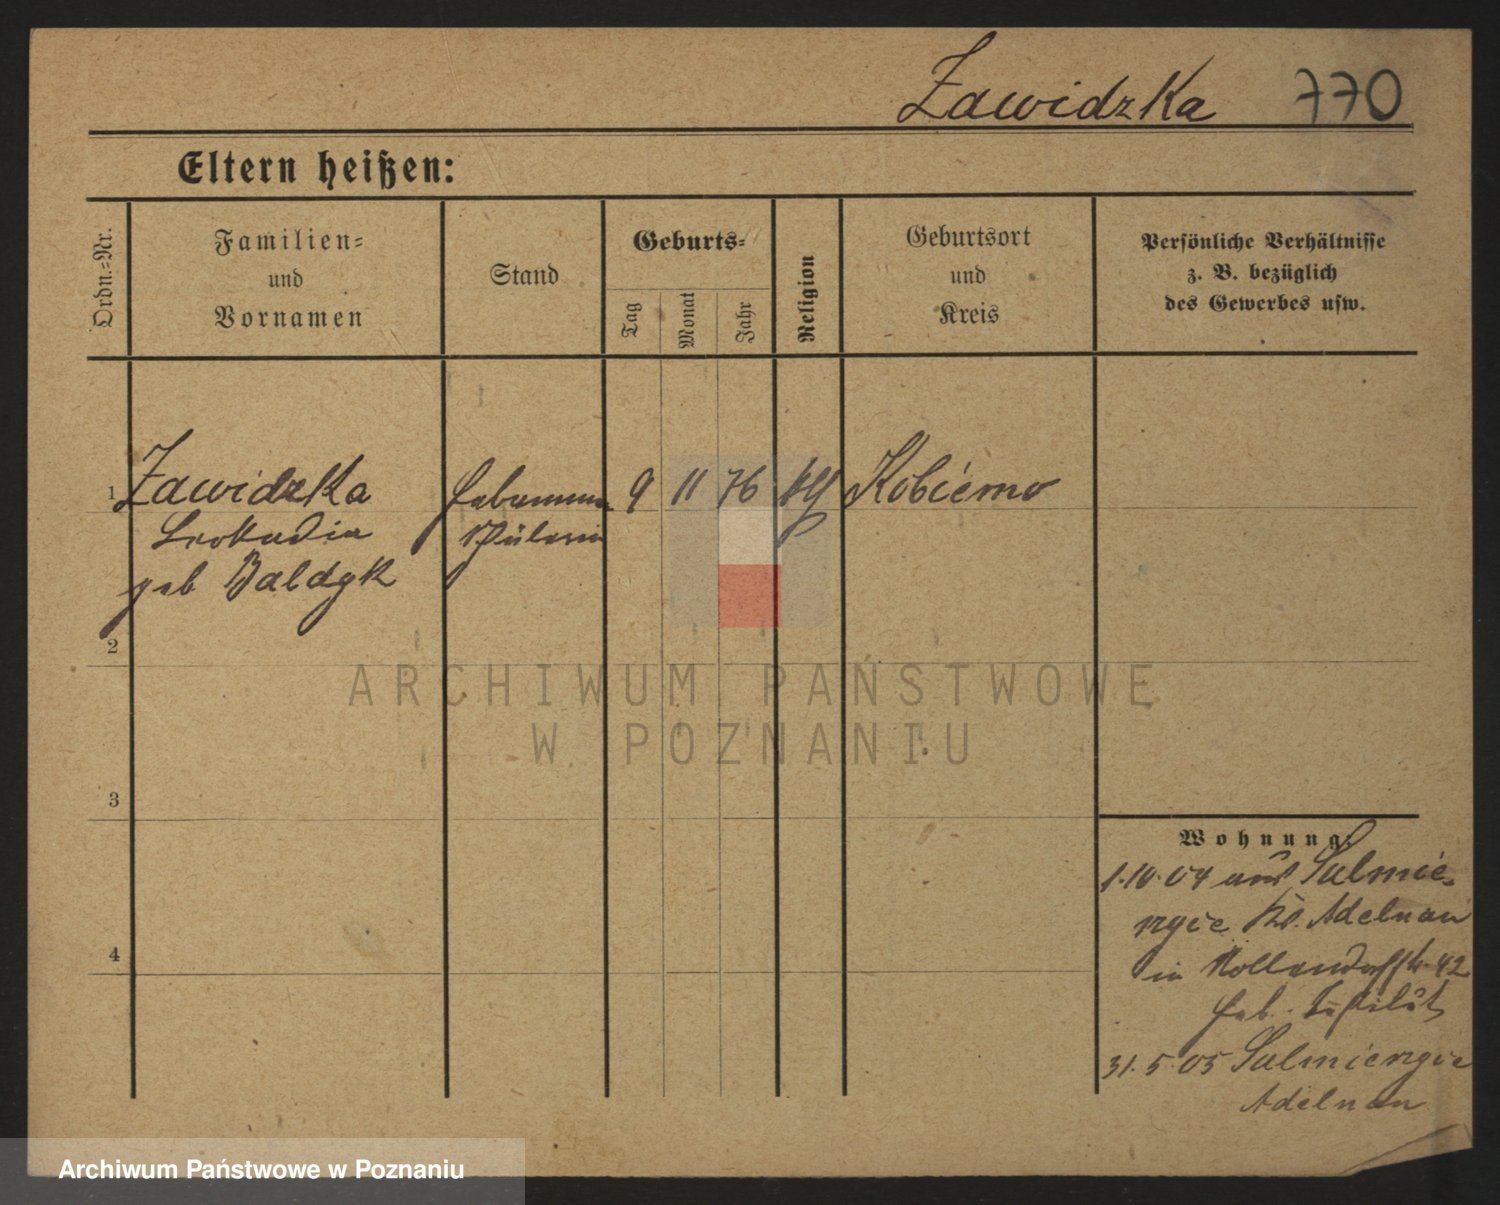 Zawidzka 770
Eltern heißen:
Ordn.=Nr.
Familien=
und
Vornamen
Stand
Geburts=
Tag
Monat
Jahr
Religion
Geburtsort
und
Kreis
Persönliche Verhältnisse
z. B. bezüglich
des Gewerbes usw.
1 Zawidzka 9 11 76 Kobierno
Leokadia Schülerin
geb Baldyk
2
3
4
Wohnung
1.10.04 aus Sulmie-
rzyce Kr. Adelnau
in 42
Heb. Institut
31.5.05 Sulmierzyce
Adelnau
ARCHIWUM PAŃSTWOWE
W POZNANIU
Archiwum Państwowe w Poznaniu